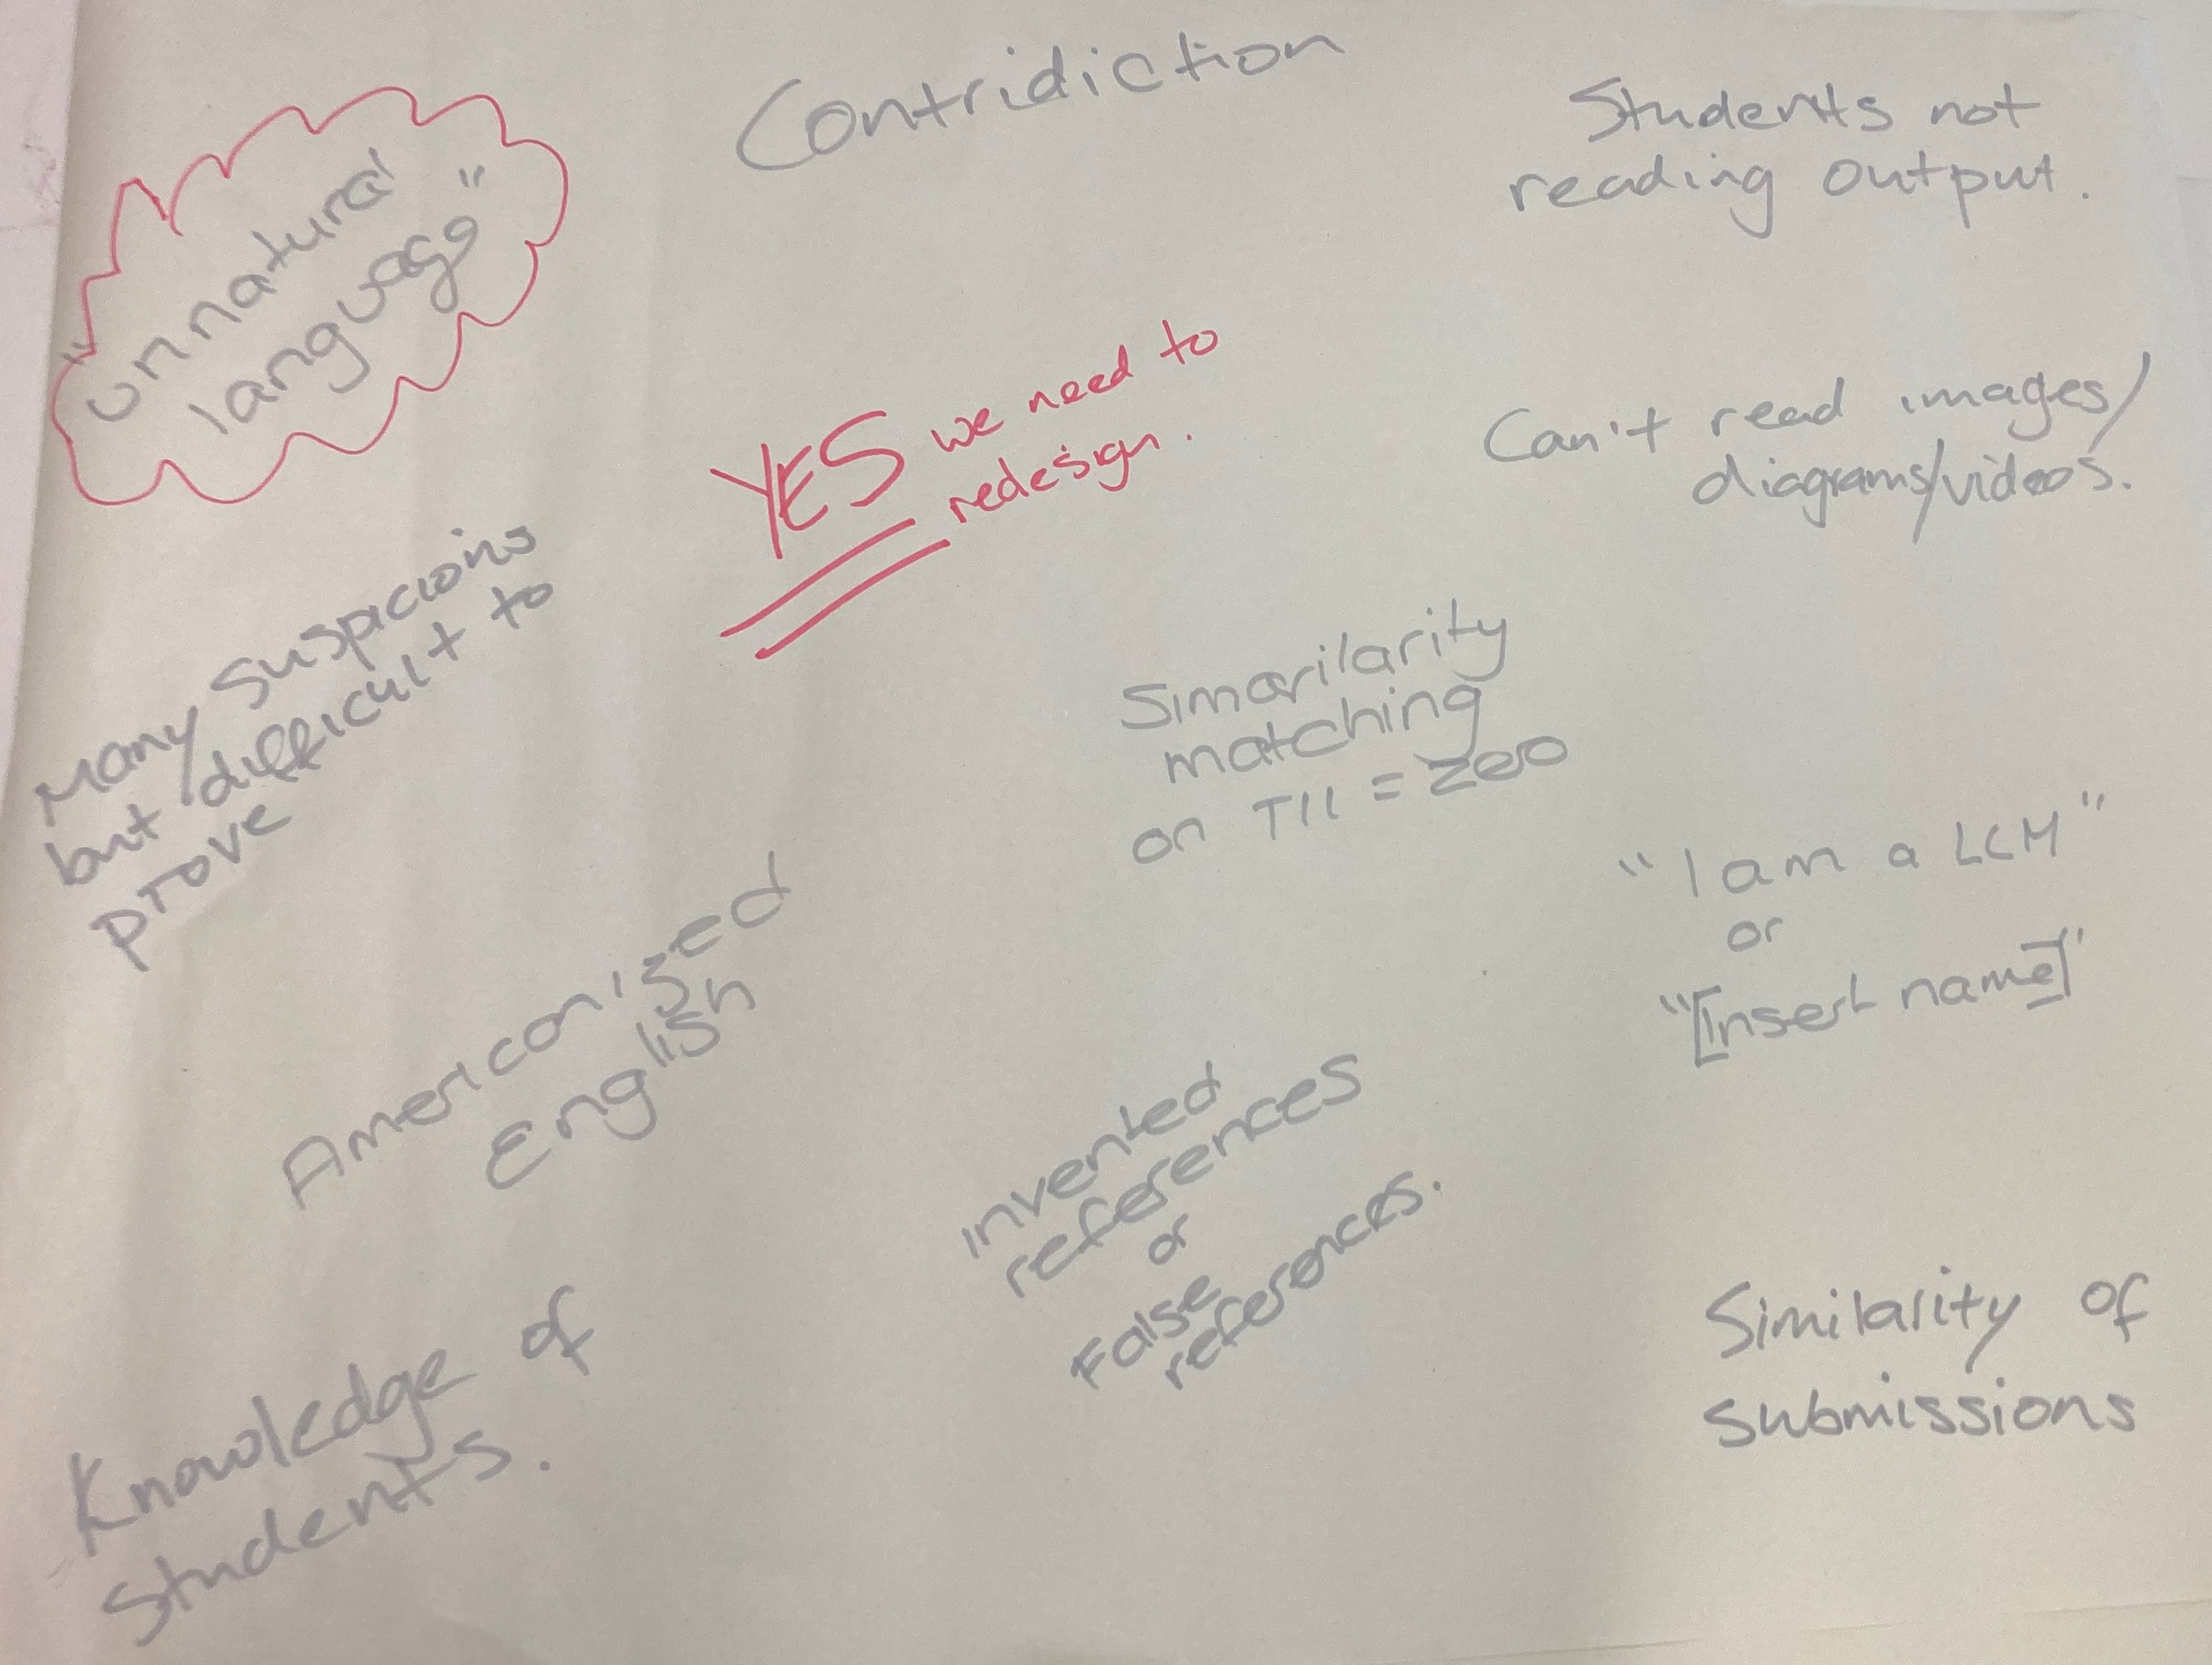 Contridiction
Students not
reading output.
"unnatural
language"
YES we need to
redesign.
Can't read images/
diagrams/videos.
Many suspicioins
but difficult to
prove
Simarilarity
matching
on TII = zero
"I am a LLM"
or
"[Insert name]"
Americanised
English
invented
references
or
False
references.
Knowledge of
students.
Similarity of
submissions